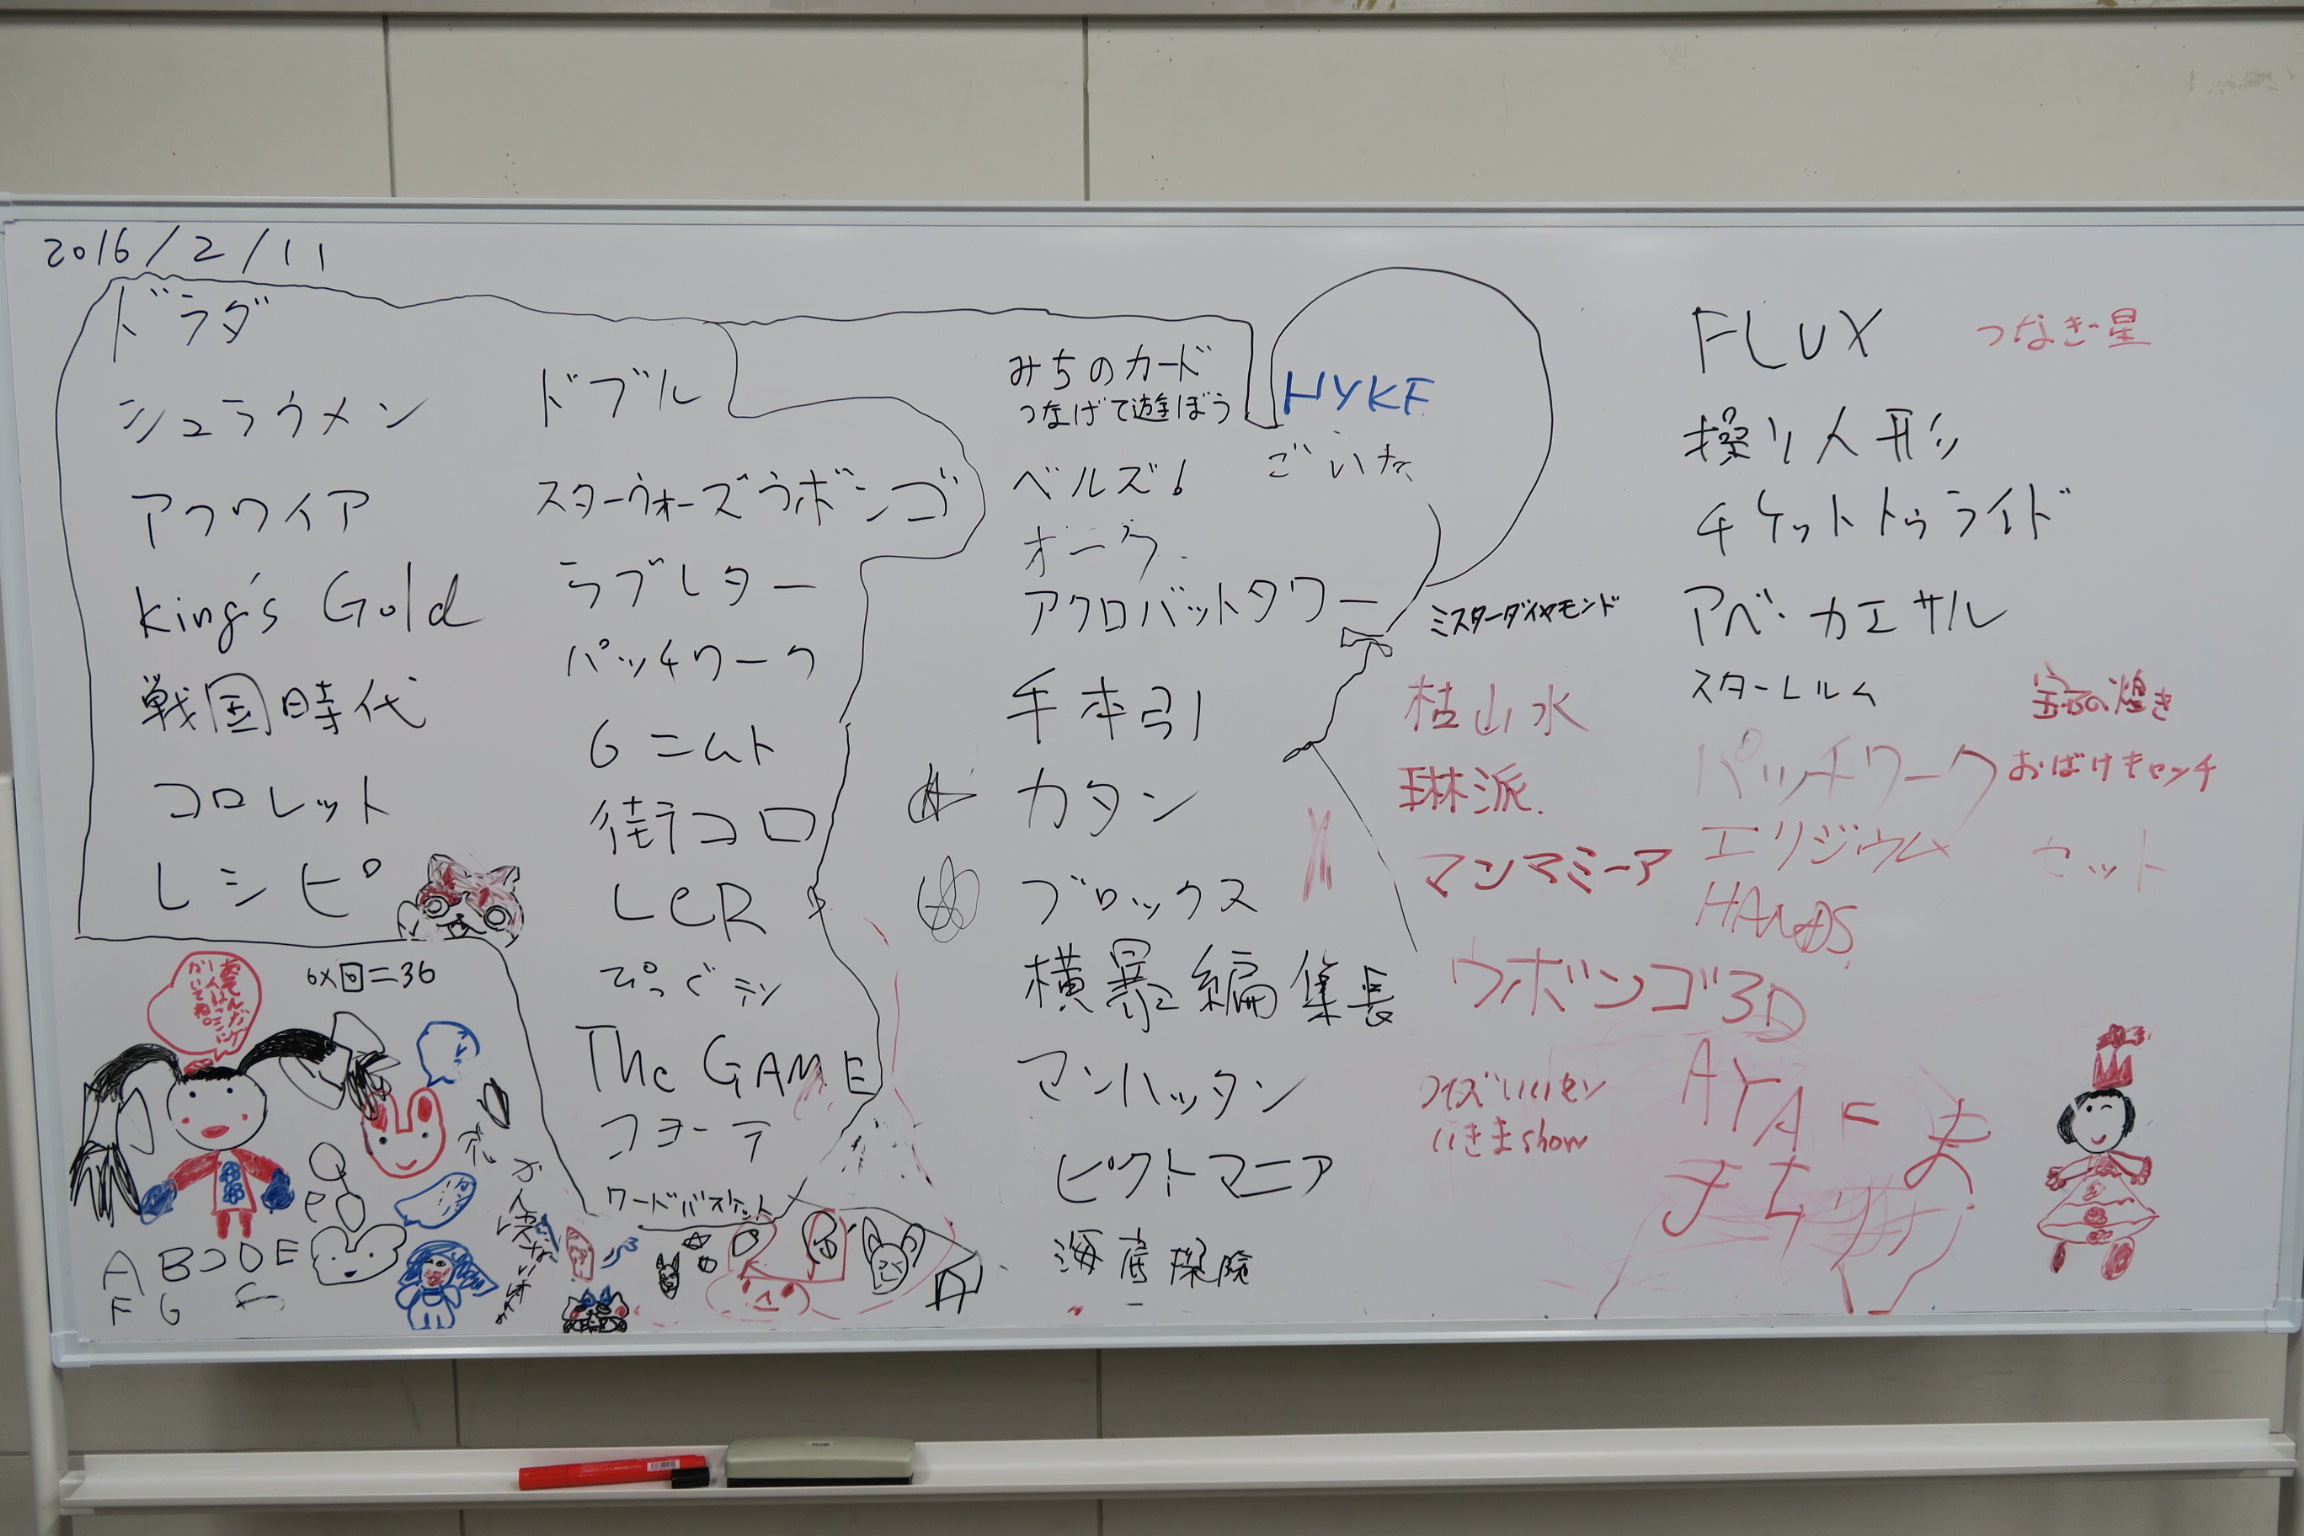 2016/2/11
ドラダ
シュラウメン
アクワイア
King's Gold
戦国時代
コロレット
レシピ
6×6=36
A B C D E
F G
ドブル
スターウォーズウボンゴ
ラブレター
パッチワーク
6ニムト
街コロ
LCR
ぴっぐテン
The GAME
コヨーテ
ワードバスケット
みちのカード
つなげて遊ぼう
ベルズ!
オーク
アクロバットタワー
手本引
カタン
ブロックス
横暴編集長
マンハッタン
ピクトマニア
海底探険
HYKE
ごいた
ミスターダイヤモンド
枯山水
琳派
マンマミーア
ウボンゴ3D
クイズいいセン
いきまshow
FLUX
操り人形
チケットトゥライド
アベ・カエサル
スターレルム
パッチワーク
エリジウム
HANDS
AYA
つなぎ星
宝石の煌き
おばけキャッチ
セット